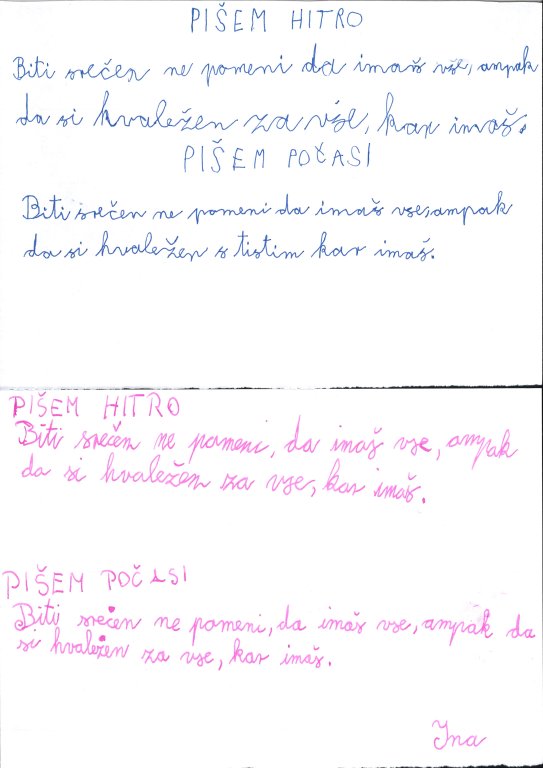 PIŠEM HITRO
Biti srečen ne pomeni da imaš vše, ampak
da si hvaležen za vše, kar imaš.
PIŠEM POČASI
Biti srečen ne pomeni da imaš vse, ampak
da si hvaležen s tistim kar imaš.
PIŠEM HITRO
Biti srečen ne pomeni, da imaš vse, ampak
da si hvaležen za vse, kar imaš.
PIŠEM POČASI
Biti srečen ne pomeni, da imaš vse, ampak da
si hvaležen za vse, kar imaš.
Ina